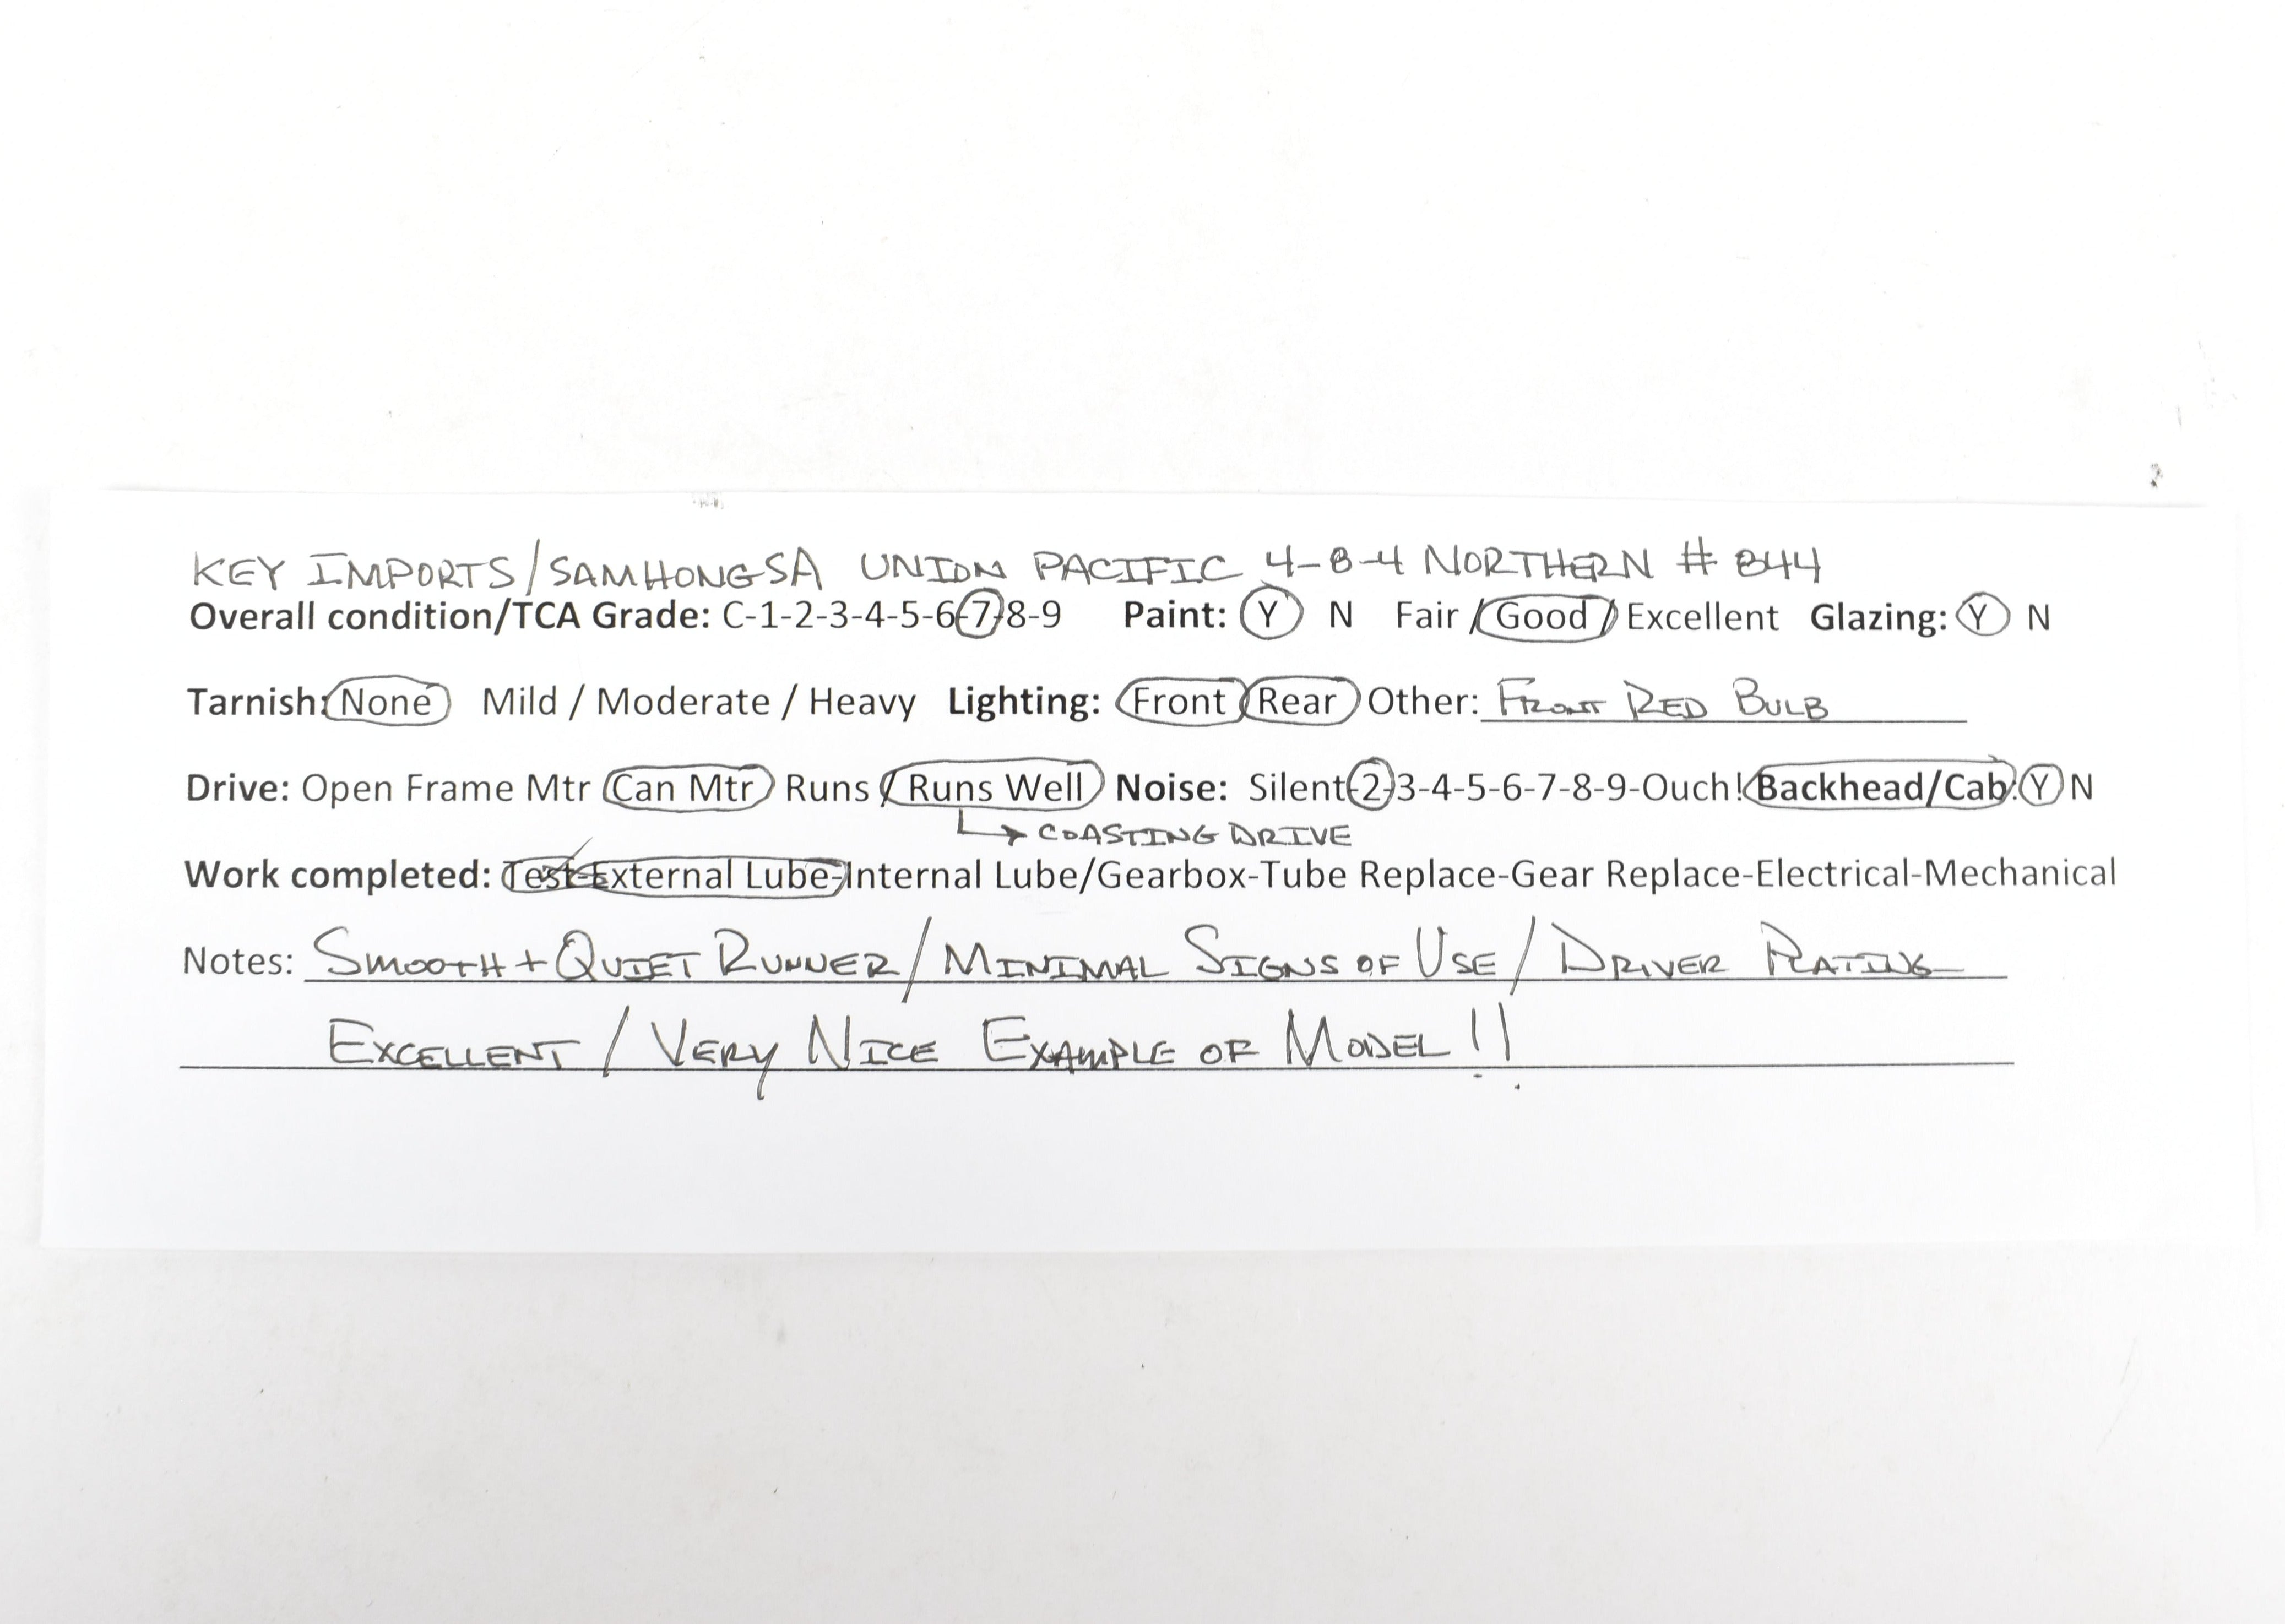 KEY IMPORTS/SAMHONGSA UNION PACIFIC 4-8-4 NORTHERN # 844
Overall condition/TCA Grade: C-1-2-3-4-5-6-7-8-9 Paint: Y N Fair / Good / Excellent Glazing: Y N
Tarnish: None Mild / Moderate / Heavy Lighting: Front Rear Other: FRONT RED BULB
Drive: Open Frame Mtr Can Mtr Runs / Runs Well Noise: Silent-2-3-4-5-6-7-8-9-Ouch! Backhead/Cab: Y N
COASTING DRIVE
Work completed: Test-External Lube-Internal Lube/Gearbox-Tube Replace-Gear Replace-Electrical-Mechanical
Notes: SMOOTH + QUIET RUNNER/MINIMAL SIGNS OF USE/DRIVER PLATING
EXCELLENT/VERY NICE EXAMPLE OF MODEL!!